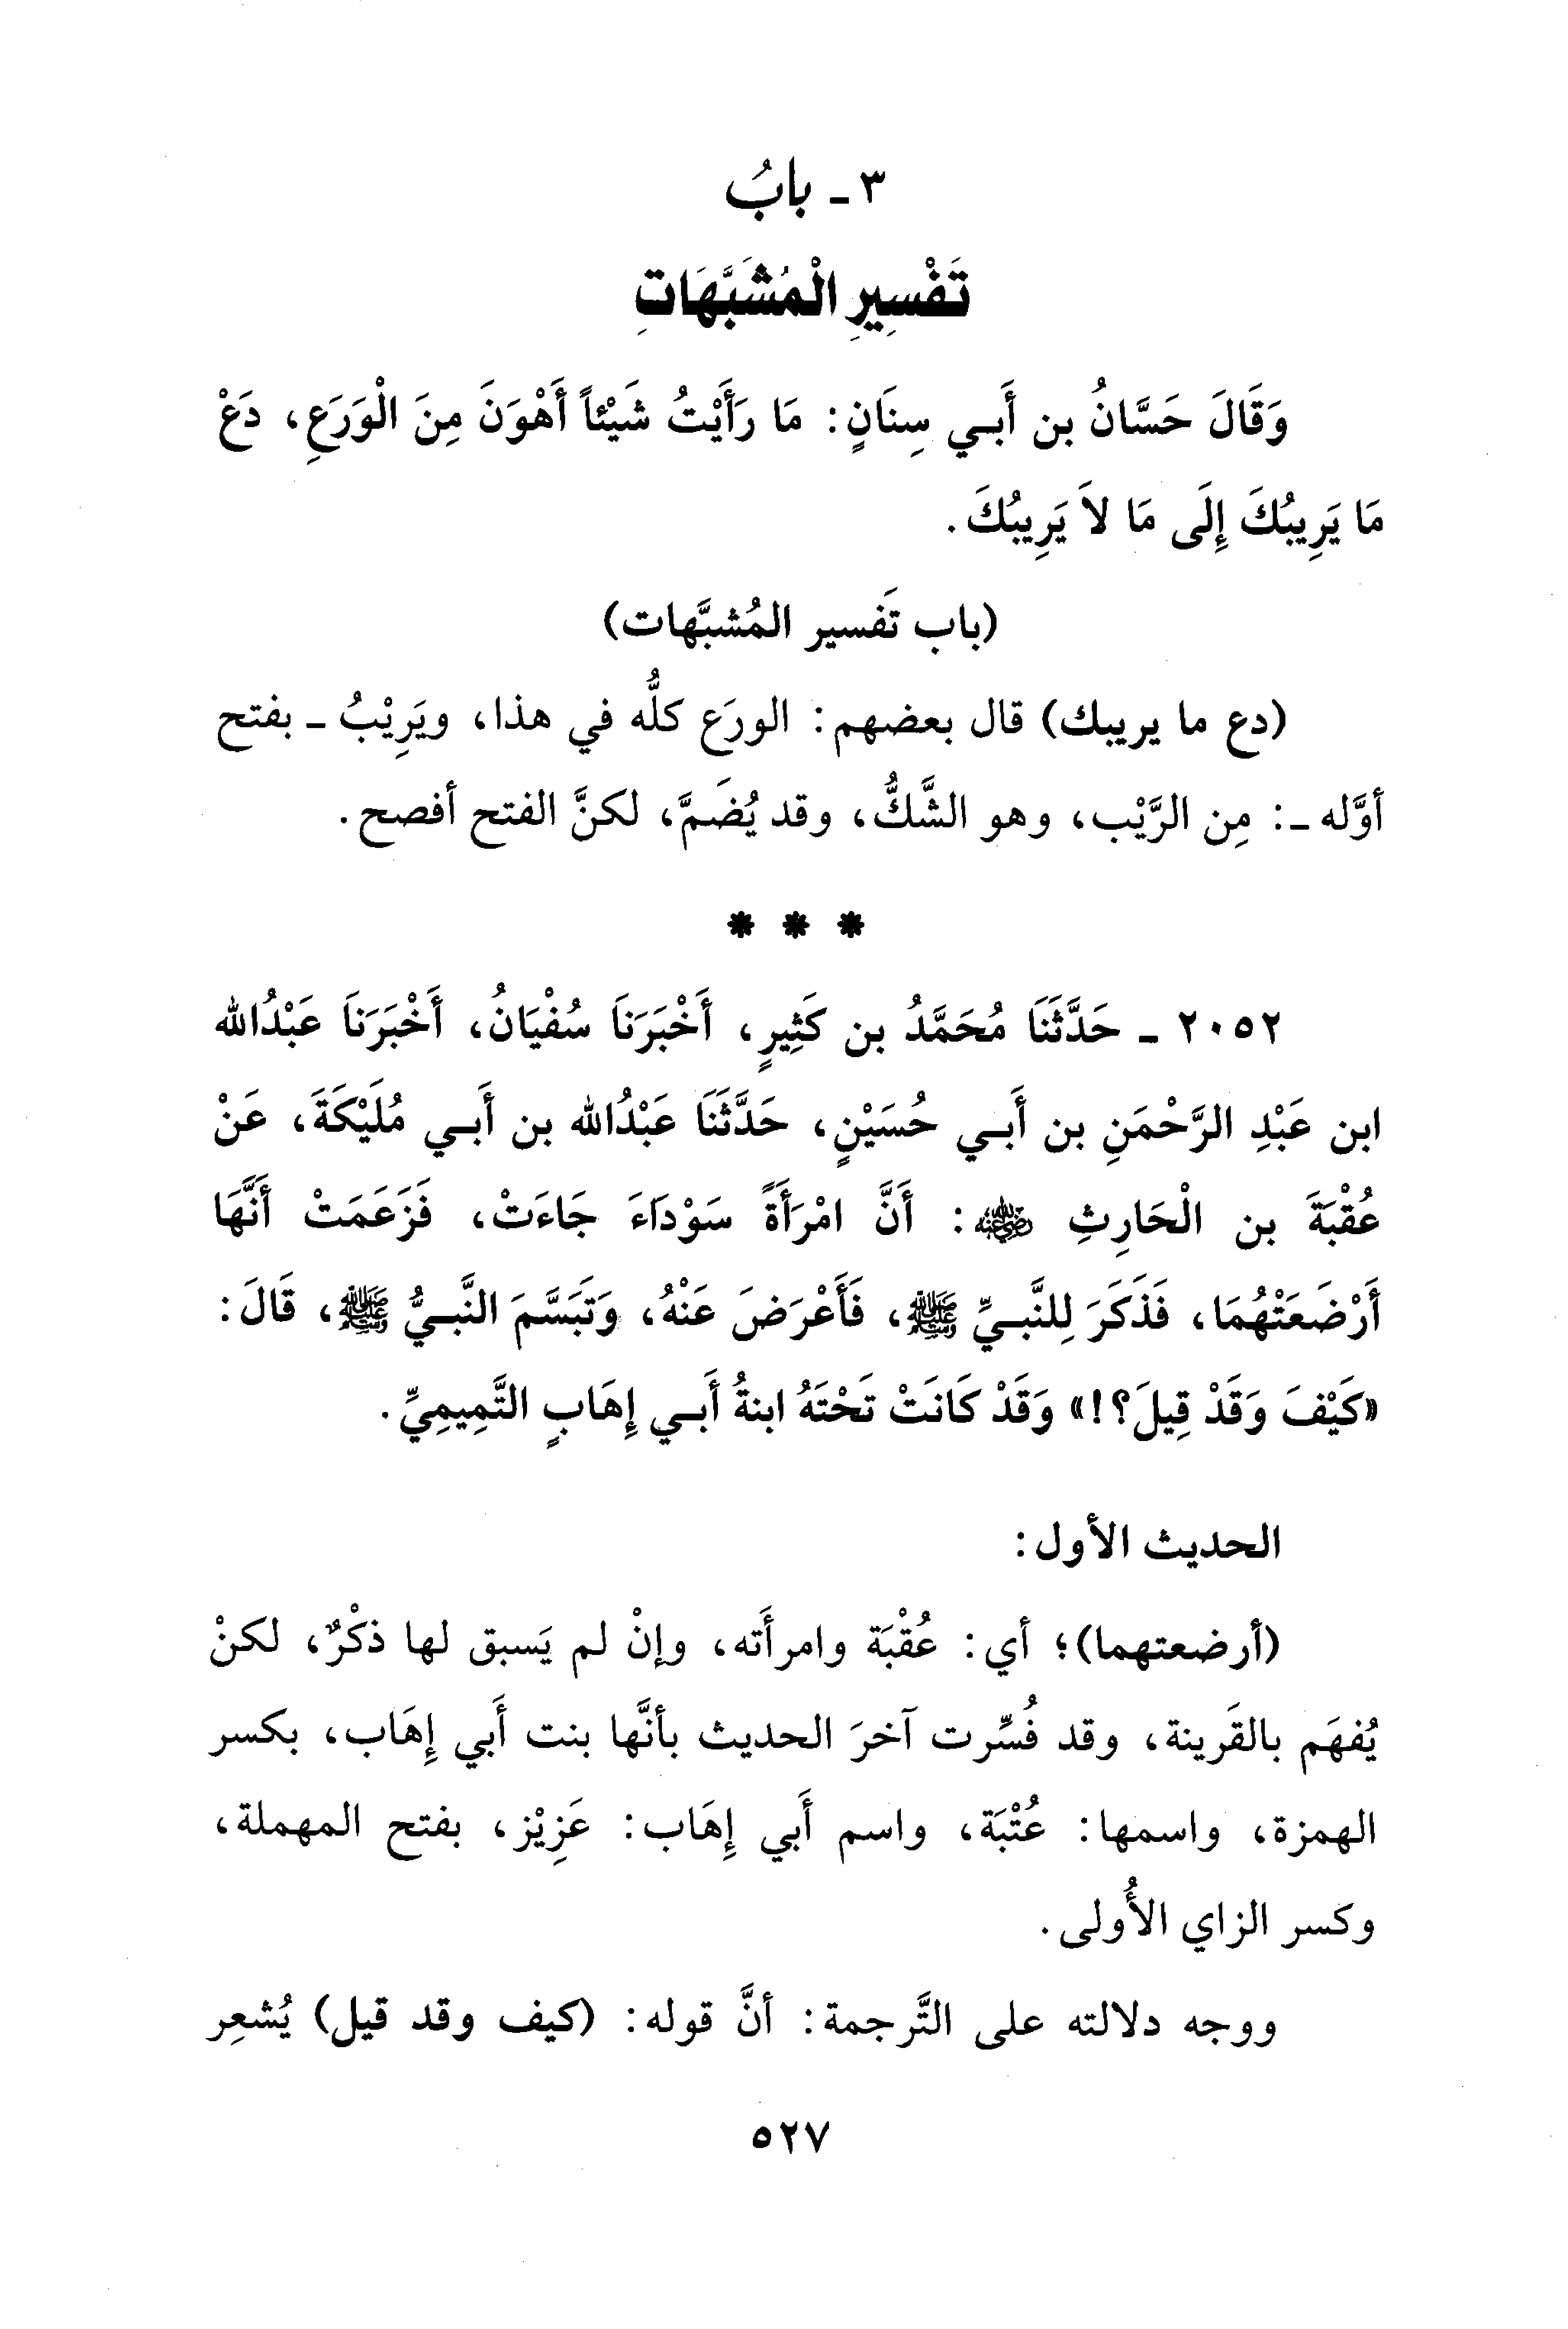 ٣ ـ بابُ
تَفْسِيرِ الْمُشَبَّهَاتِ
وَقَالَ حَسَّانُ بن أَبي سِنَانٍ: مَا رَأَيْتُ شَيْئاً أَهْوَنَ مِنَ الْوَرَعِ، دَعْ
مَا يَرِيبُكَ إِلَى مَا لاَ يَرِيبُكَ.
(باب تَفسير المُشبَّهات)
(دع ما يريبك) قال بعضهم: الورَع كلُّه في هذا، ويَرِيْبُ ـ بفتح
أوَّله ـ: مِن الرَّيْب، وهو الشَّكُّ، وقد يُضَمَّ، لكنَّ الفتح أفصح.
* * *
٢٠٥٢ ـ حَدَّثَنَا مُحَمَّدُ بن كَثِيرٍ، أَخْبَرَنَا سُفْيَانُ، أَخْبَرَنَا عَبْدُالله
ابن عَبْدِ الرَّحْمَنِ بن أَبي حُسَيْنٍ، حَدَّثَنَا عَبْدُالله بن أَبي مُلَيْكَةَ، عَنْ
عُقْبَةَ بن الْحَارِثِ رضي الله عنه: أَنَّ امْرَأَةً سَوْدَاءَ جَاءَتْ، فَزَعَمَتْ أَنَّهَا
أَرْضَعَتْهُمَا، فَذَكَرَ لِلنَّبيِّ ﷺ، فَأَعْرَضَ عَنْهُ، وَتَبَسَّمَ النَّبيُّ ﷺ، قَالَ:
«كَيْفَ وَقَدْ قِيلَ؟!» وَقَدْ كَانَتْ تَحْتَهُ ابنةُ أَبي إِهَابٍ التَّمِيمِيِّ.
الحديث الأول:
(أرضعتهما)؛ أي: عُقْبَة وامرأَته، وإنْ لم يَسبق لها ذكْرٌ، لكنْ
يُفهَم بالقَرينة، وقد فُسِّرت آخرَ الحديث بأنَّها بنت أَبي إِهَاب، بكسر
الهمزة، واسمها: عُتْبَة، واسم أَبي إِهَاب: عَزِيْز، بفتح المهملة،
وكسر الزاي الأُولى.
ووجه دلالته على التَّرجمة: أنَّ قوله: (كيف وقد قيل) يُشعِر
٥٢٧